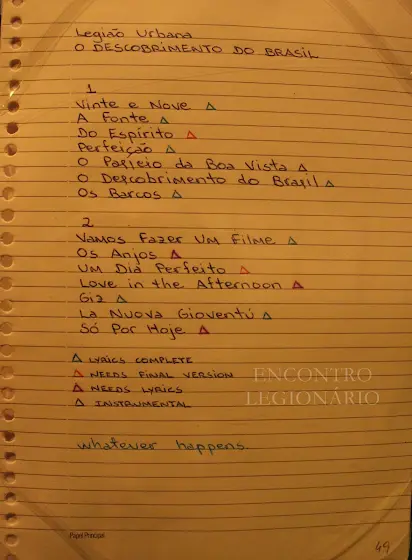 Legião Urbana
O DESCOBRIMENTO DO BRASIL
1
Vinte e Nove △
A Fonte △
Do Espírito △
Perfeição △
O Passeio da Boa Vista △
O Descobrimento do Brasil △
Os Barcos △
2
Vamos Fazer Um Filme △
Os Anjos △
Um Dia Perfeito △
Love in the Afternoon △
Giz △
La Nuova Gioventú △
Só Por Hoje △
△ LYRICS COMPLETE
△ NEEDS FINAL VERSION
△ NEEDS LYRICS
△ INSTRUMENTAL
ENCONTRO
LEGIONÁRIO
whatever happens.
Papel Principal
49